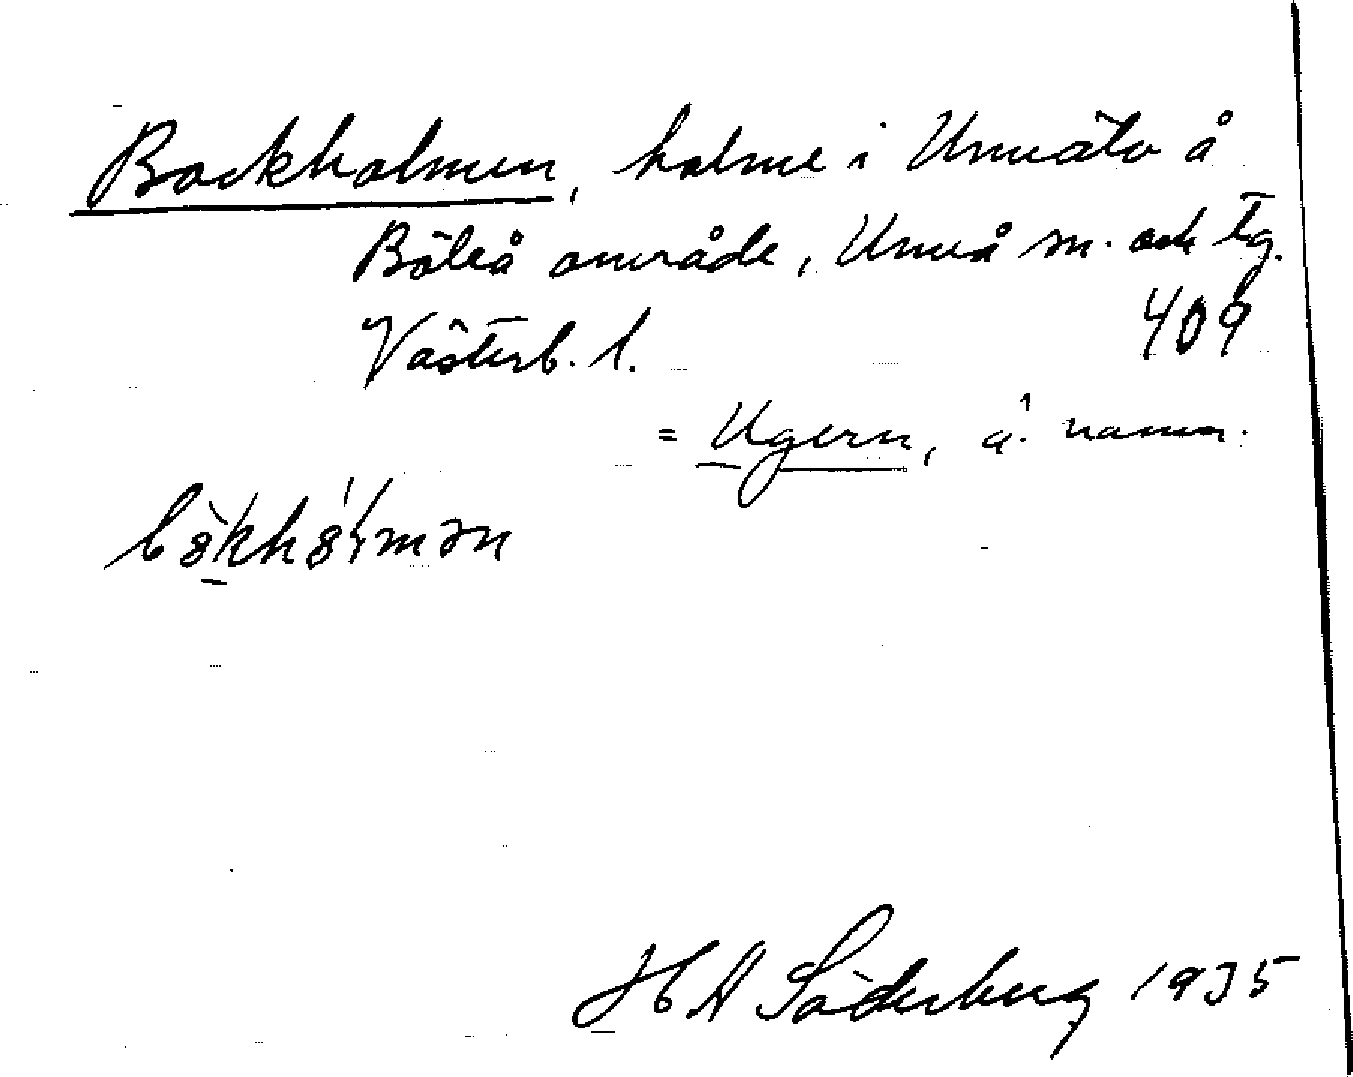 Bockholmen, holme i Umeälv å
Böleå område, Umeå sn. och tg.
Västerb. l. 409
= Ugern, ä. namn.
H A Söderberg 1935